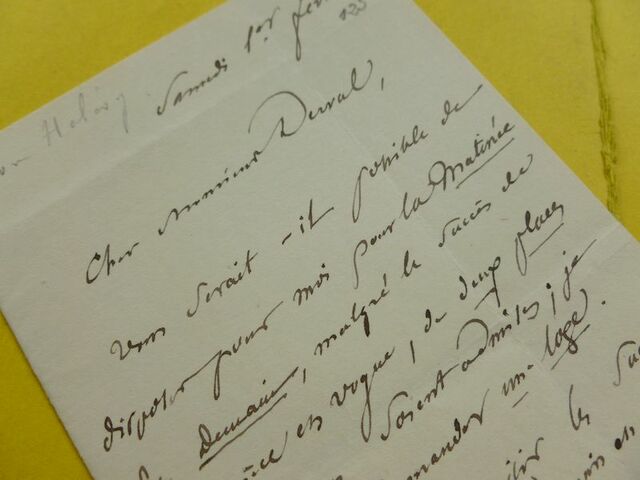 Halévy
Samedi 1er fév
Cher Monsieur Duval,
Vous serait-il possible de
disposer pour moi pour la Matinée
de Demain, malgré le succès de
pièce en vogue, de deux places
soient admises ; je
demander une loge.
les